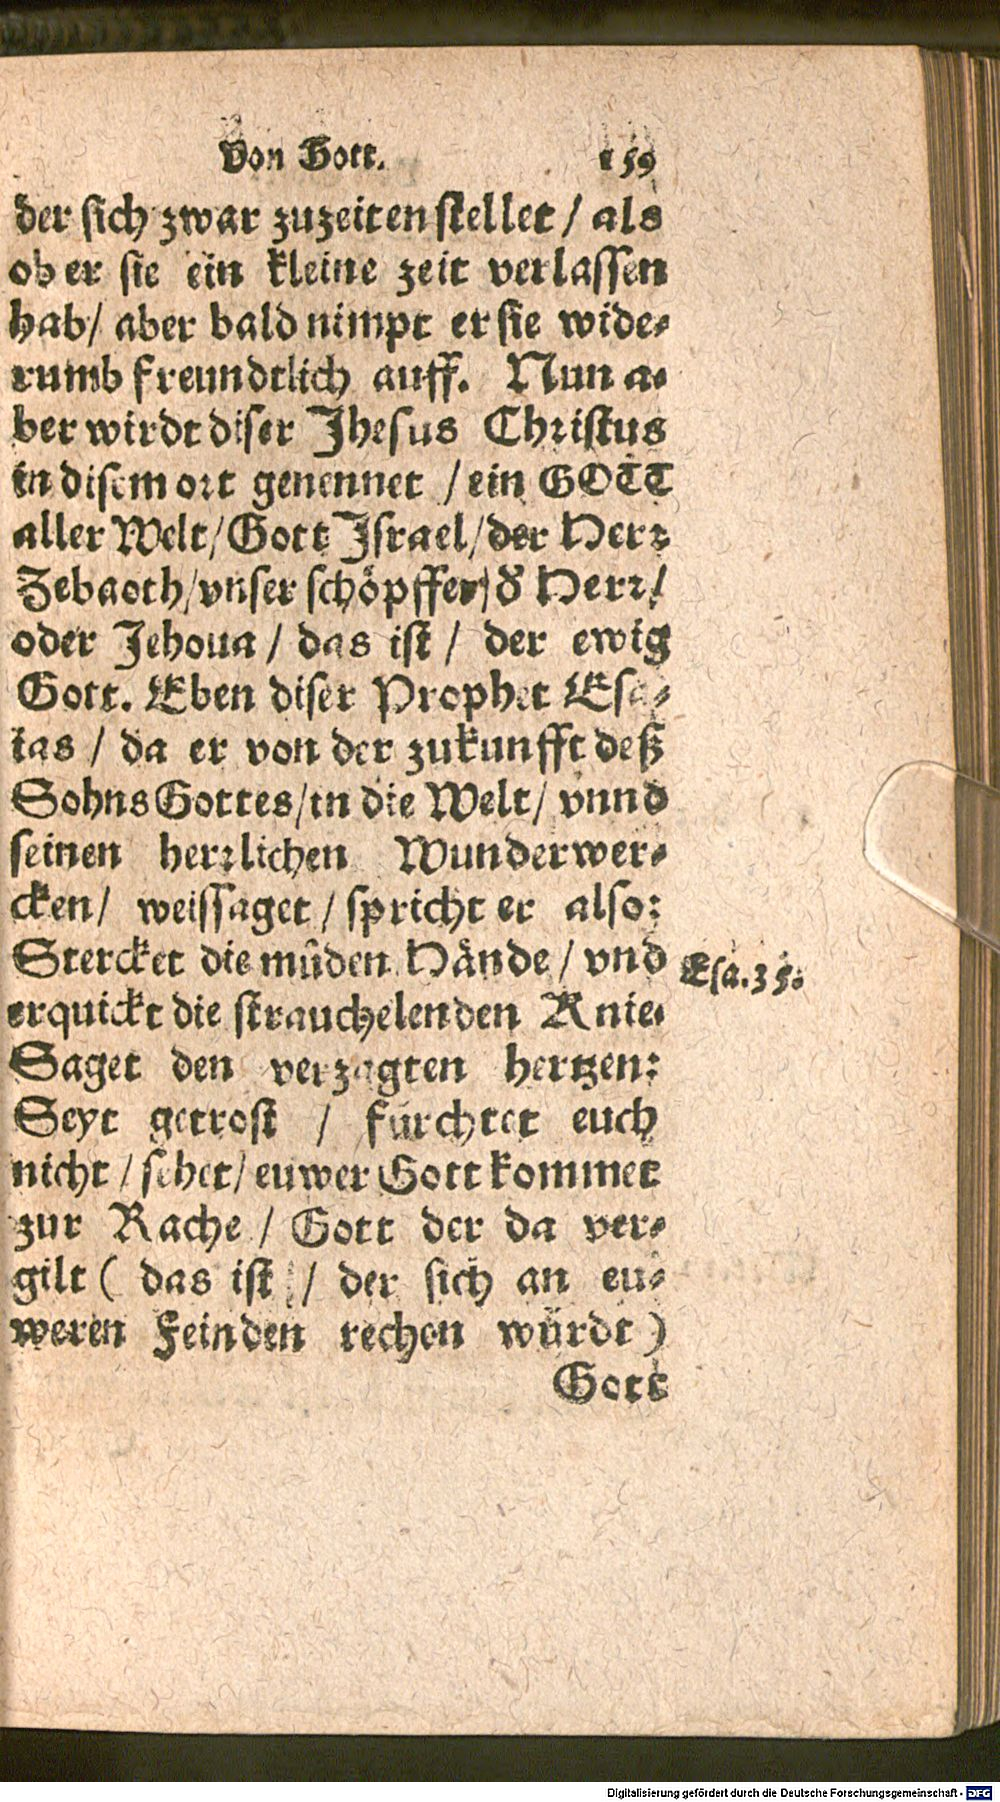 Von Gott. 159
der sich zwar zuzeiten stellet / als
ob er sie ein kleine zeit verlassen
hab / aber bald nimpt er sie wide⸗
rumb freundtlich auff. Nun a⸗
ber wirdt diser Jhesus Christus
in disem ort genennet / ein GOTT
aller Welt / Gott Israel / der Herr
Zebaoth / vnser schöpffer / d' Herr /
oder Jehoua / das ist / der ewig
Gott. Eben diser Prophet Esa⸗
ias / da er von der zukunfft deß
Sohns Gottes / in die Welt / vnnd
seinen herrlichen Wunderwer⸗
cken / weissaget / spricht er also:
Stercket die müden Hände / vnd
Esa. 35.
erquickt die strauchelenden Knie.
Saget den verzagten hertzen:
Seyt getrost / fürchtet euch
nicht / sehet / euwer Gott kommet
zur Rache / Gott der da ver⸗
gilt ( das ist / der sich an eu⸗
weren Feinden rechen würdt )
Gott
Digitalisierung gefördert durch die Deutsche Forschungsgemeinschaft - DFG